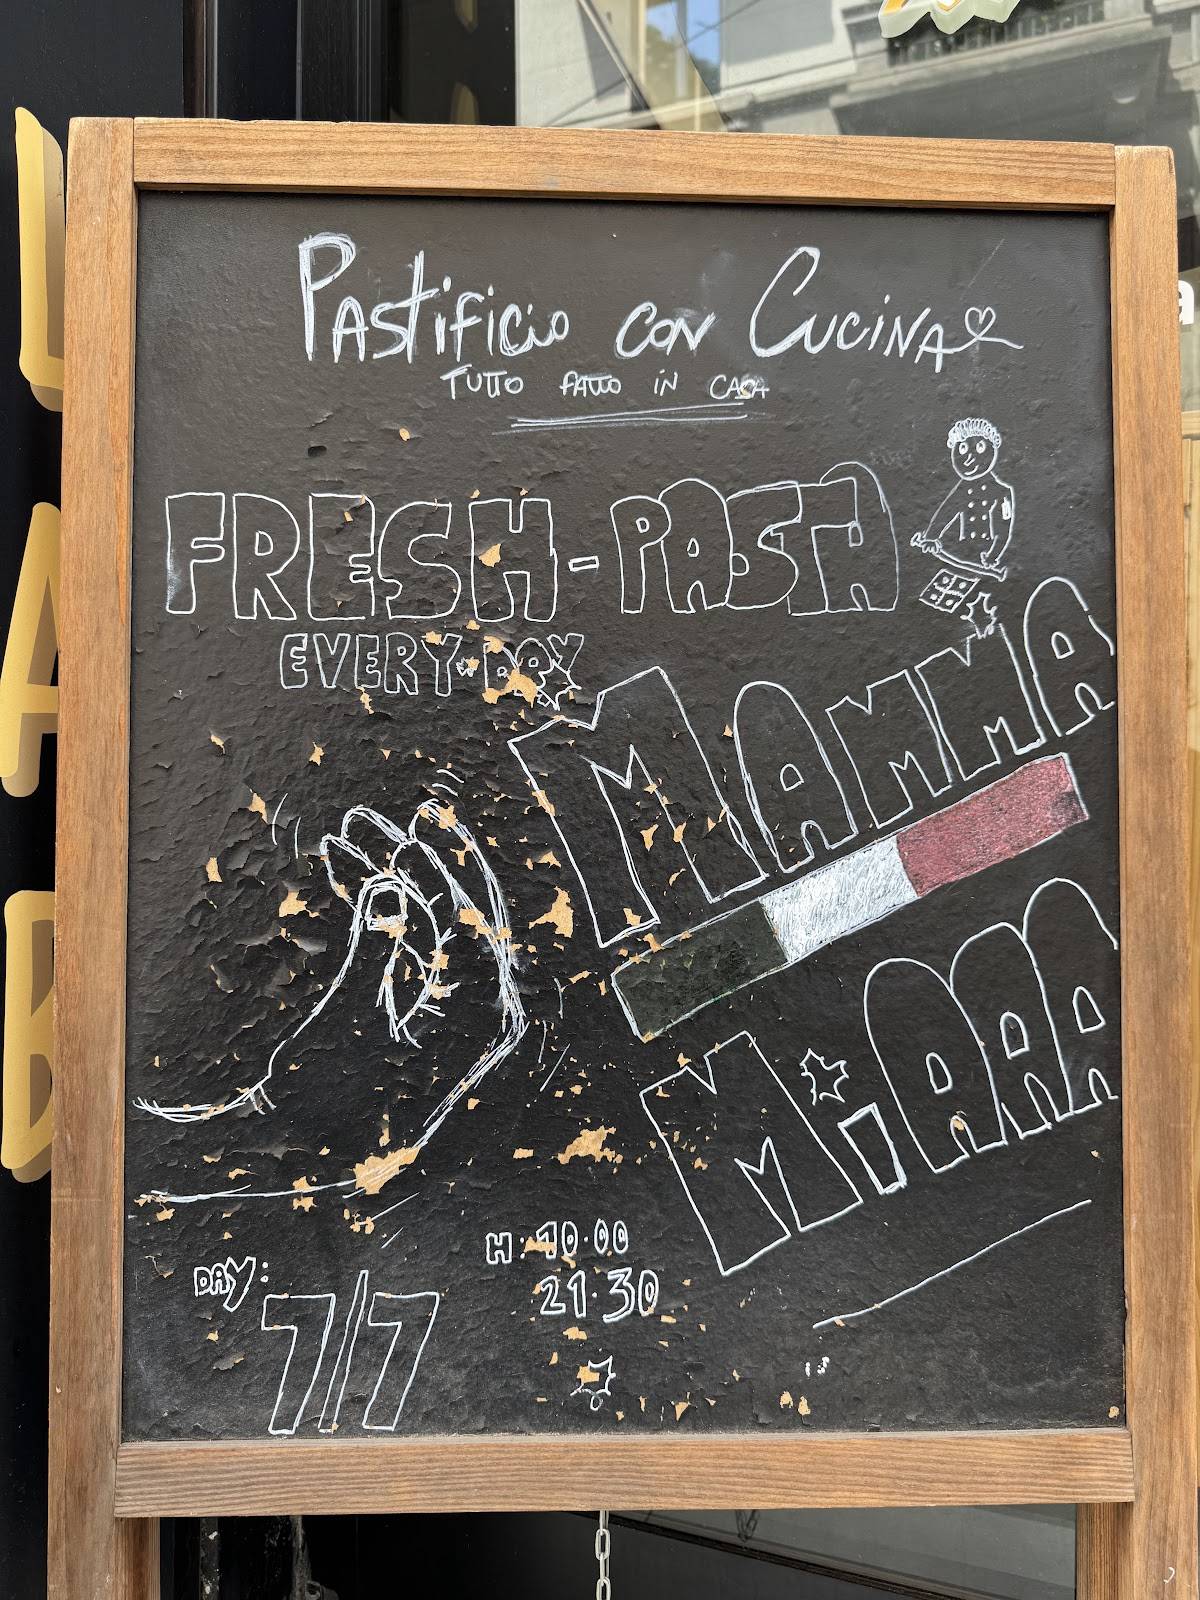 Pastificio con Cucina
TUTTO FATTO IN CASA
FRESH-PASTA
EVERY DAY
MAMMA
MiAAA
H: 10.00
21.30
DAY:
7/7
L
A
B